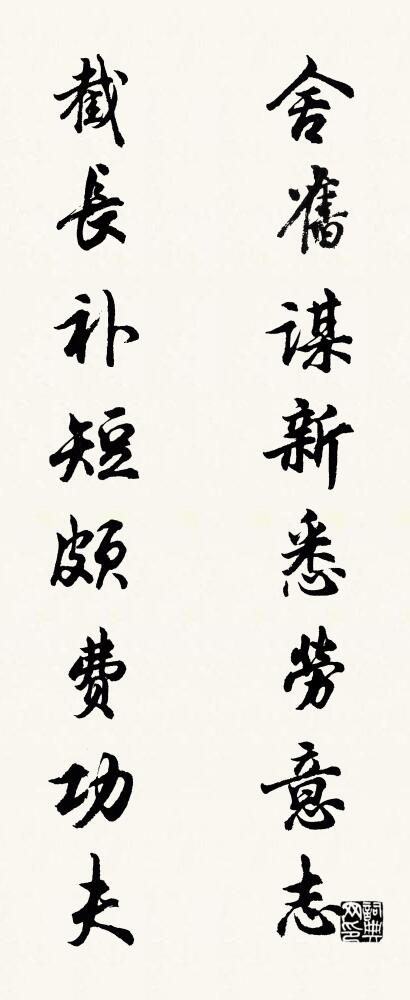 舍舊謀新悉勞意志
截長补短頗費功夫
詞典网印